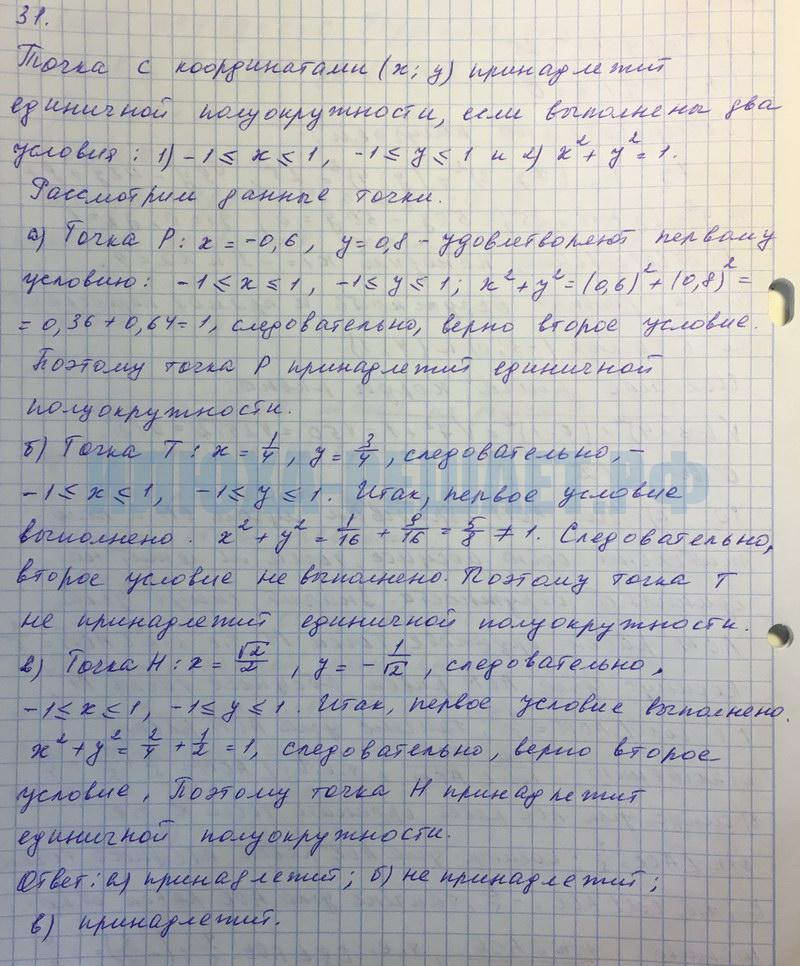 31.
Точка с координатами (x; y) принадлежит
единичной полуокружности, если выполнены два
условия: 1) -1 ≤ x ≤ 1, -1 ≤ y ≤ 1 и 2) x² + y² = 1.
Рассмотрим данные точки.
а) Точка P: x = -0,6, y = 0,8 - удовлетворяют первому
условию: -1 ≤ x ≤ 1, -1 ≤ y ≤ 1; x² + y² = (0,6)² + (0,8)² =
= 0,36 + 0,64 = 1, следовательно, верно второе условие.
Поэтому точка P принадлежит единичной
полуокружности.
б) Точка T: x = 1/4, y = 3/4, следовательно, -
-1 ≤ x ≤ 1, -1 ≤ y ≤ 1. Итак, первое условие
выполнено. x² + y² = 1/16 + 9/16 = 5/8 ≠ 1. Следовательно,
второе условие не выполнено. Поэтому точка T
не принадлежит единичной полуокружности.
в) Точка H: x = √2/2, y = -1/√2, следовательно,
-1 ≤ x ≤ 1, -1 ≤ y ≤ 1. Итак, первое условие выполнено.
x² + y² = 2/4 + 1/2 = 1, следовательно, верно второе
условие, Поэтому точка H принадлежит
единичной полуокружности.
Ответ: а) принадлежит; б) не принадлежит;
в) принадлежит.